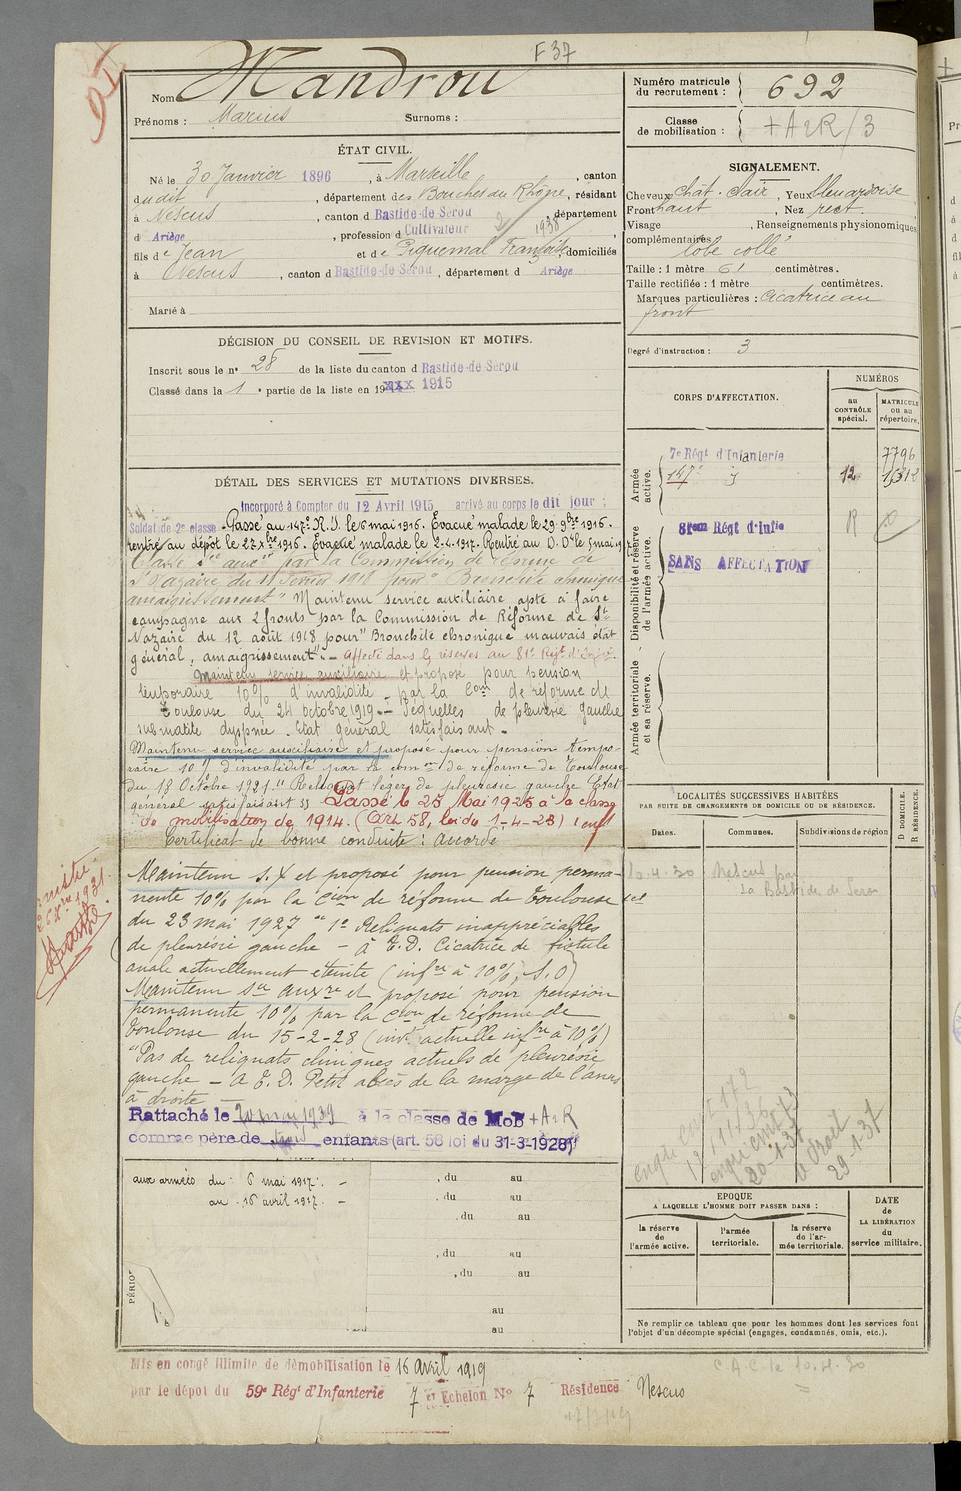 F 37
Nom Mandrou
Prénoms : Marius Surnoms :
ÉTAT CIVIL.
Né le 30 Janvier 1896, à Marseille, canton
dudit, département des Bouches du Rhône, résidant
à Nescus, canton d Bastide-de-Serou, département
d Ariège, profession d Cultivateur 1938
fils de Jean et de Piquemal Françoise, domiciliés
à Nescus, canton d Bastide-de-Serou, département d Ariège
Marié à
DÉCISION DU CONSEIL DE REVISION ET MOTIFS.
Inscrit sous le n° 28 de la liste du canton d Bastide-de-Serou
Classé dans la 1e partie de la liste en 19xxx 1915
DÉTAIL DES SERVICES ET MUTATIONS DIVERSES.
Incorporé à Compter du 12 Avril 1915 arrivé au corps le dit jour ;
Soldat de 2e classe - Passé au 147e R.I. le 6 mai 1916. Evacué malade le 29 9bre 1916.
rentré au dépôt le 27 xbre 1916. Evacué malade le 2-4-1917. Rentré au D. D le 5 mai 1917
Classé Sce auxre par la Commission de réforme de
St Nazaire du 11 Février 1918 pour "Bronchite chronique
amaigrissement" Maintenu service auxiliaire apte à faire
campagne aux 2 fronts par la Commission de Réforme de St
Nazaire du 12 août 1918 pour "Bronchite chronique mauvais état
général, amaigrissement". - Affecté dans les réserves au 81e Régt d'Infrie.
Maintenu service auxiliaire et proposé pour pension
temporaire 10% d'invalidité - par la Com on de réforme de
Toulouse du 24 octobre 1919 - Séquelles de pleurésie gauche
submatité dyspnée. Etat général satisfaisant -
Maintenu service auxiliaire et proposé pour pension tempo-
raire 10% d'invalidité par la com on de réforme de Toulouse
du 18 Octobre 1921 "Reliquat léger de pleurésie gauche Etat
général satisfaisant" Passé le 25 Mai 1925 à la classe
de mobilisation de 1914. (Art. 58, loi du 1-4-23) 1 enft
Certificat de bonne conduite : Accordé
Maintenu S.X et proposé pour pension perma-
nente 10% par la Cion de réforme de Toulouse
du 23 mai 1927 "1° Reliquats inappréciables
de pleurésie gauche - à E.D. Cicatrice de fistule
anale actuellement éteinte (infre à 10%, S.O)
Maintenu Sce auxre et proposé pour pension
permanente 10% par la Cion de réforme de
Toulouse du 15-2-28 (invté actuelle infre à 10%)
"Pas de reliquats cliniques actuels de pleurésie
gauche - A E.D. Petit abcès de la marge de l'anus
à droite
Rattaché le 20 mai 1939 à la classe de MoB + A 2 R
comme père de enfants (art. 58 loi du 31-3-1928)
aux armées du 6 mai 1917. -
au 16 avril 1917. -
, du au
, du au
, du au
, du au
, du au
au
au
PÉRIO
Mis en congé illimité de démobilisation le 16 avril 1919
par le dépôt du 59e Régt d'Infanterie 7 et Echelon N° 7 Résidence Nescus
Numéro matricule du recrutement : 692
Classe de mobilisation : + A 2 R / 3
SIGNALEMENT.
Cheveux chât. clair, Yeux bleu ardoise
Front haut, Nez rect.
Visage, Renseignements physionomiques
complémentaires
lobe collé
Taille : 1 mètre 61 centimètres.
Taille rectifiée : 1 mètre centimètres.
Marques particulières : Cicatrice au
front
Degré d'instruction : 3
CORPS D'AFFECTATION.
NUMÉROS
au CONTRÔLE spécial.
MATRICULE ou au répertoire.
Armée active.
7e Régt d'Infanterie 7796
147e 12 1312
Disponibilité et réserve de l'armée active.
81eme Régt d'Infie R
SANS AFFECTATION
Armée territoriale et sa réserve.
LOCALITÉS SUCCESSIVES HABITÉES
PAR SUITE DE CHANGEMENTS DE DOMICILE OU DE RÉSIDENCE.
D DOMICILE. R RÉSIDENCE.
Dates. Communes. Subdivisions de région
10.4.30 Nescus par
La Bastide de Serou
20-1-37
29-1-37
EPOQUE
A LAQUELLE L'HOMME DOIT PASSER DANS :
la réserve de l'armée active.
l'armée territoriale.
la réserve de l'armée territoriale.
DATE de LA LIBÉRATION du service militaire.
Ne remplir ce tableau que pour les hommes dont les services font
l'objet d'un décompte spécial (engagés, condamnés, omis, etc.).
C.A.C. le 10.4.30